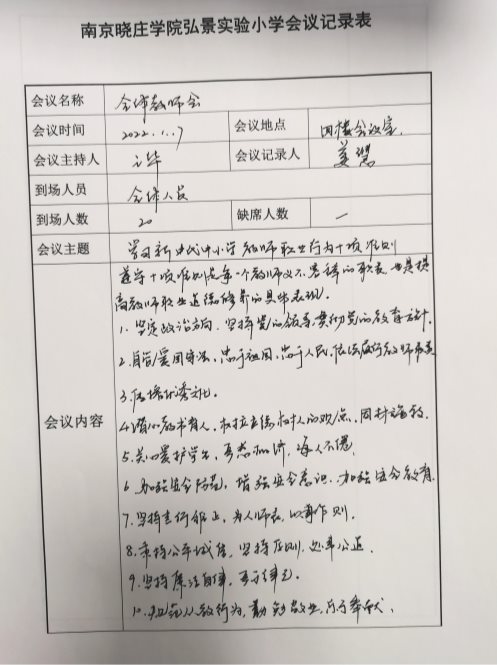 南京晓庄学院弘景实验小学会议记录表
会议名称 全体教师会
会议时间 2022.1.7 会议地点 四楼会议室
会议主持人 会议记录人
到场人员 全体人员
到场人数 20 缺席人数 一
会议主题 学习新时代中小学教师职业行为十项准则
会议内容
遵守十项准则是每个教师义不容辞的职责,也是提
高教师职业道德修养的具体表现。
1.坚定政治方向,坚持党的领导,贯彻党的教育方针。
2.自觉爱国守法,忠于祖国,忠于人民,依法履行教师职责
3.传播优秀文化。
4.潜心教书育人,树立德树人的观点,因材施教。
5.关心爱护学生,严慈相济,诲人不倦。
6.加强安全防范,增强安全意识,加强安全教育
7.坚持言行雅正,为人师表,以身作则。
8.秉持公平诚信,坚持原则,处事公道。
9.坚守廉洁自律,严于律己。
10.规范从教行为,勤勉敬业,乐于奉献。